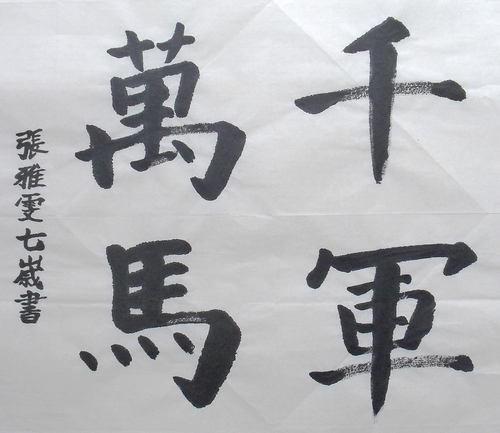 千軍
萬馬
張雅雯七歲書